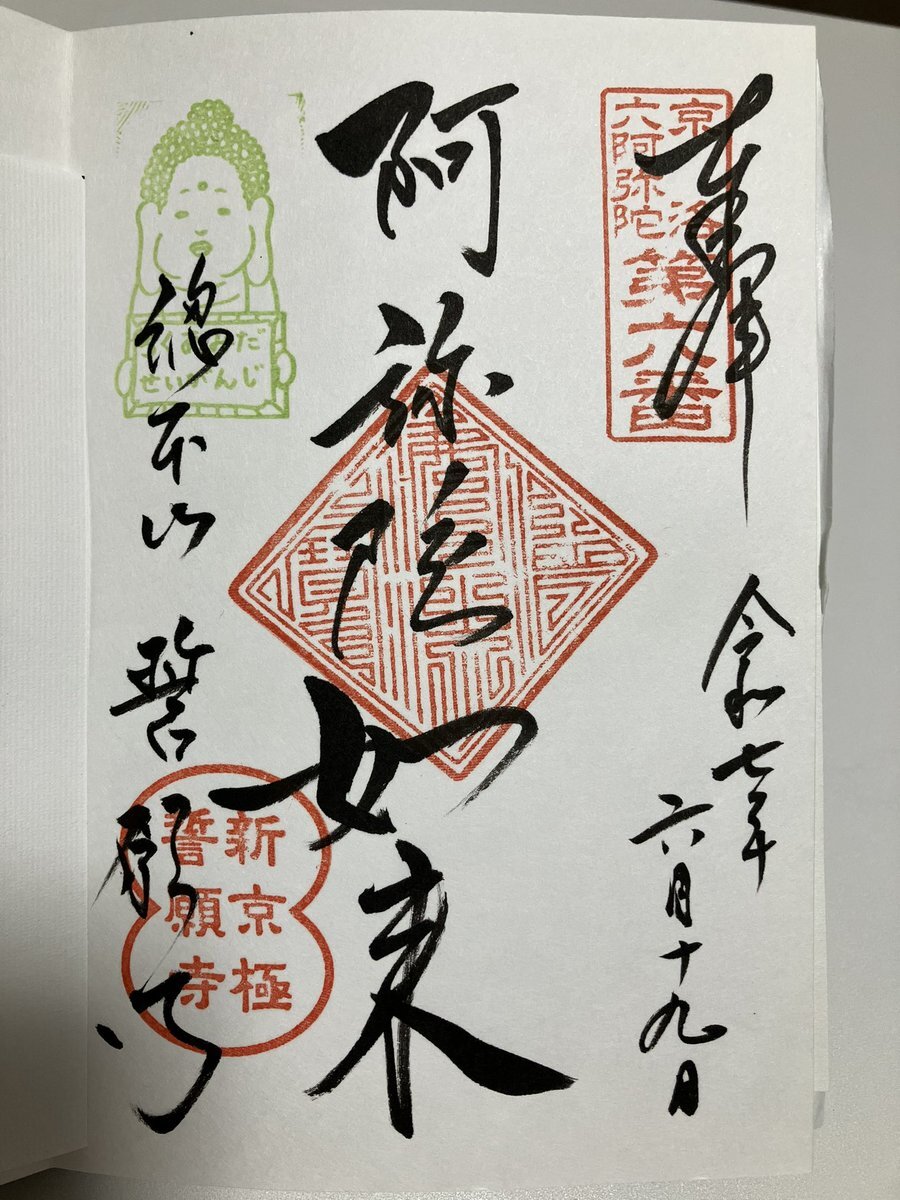 奉拝
京洛
六阿弥陀
第六番
令和七年
六月十九日
阿弥陀如来
総本山 誓願寺
せいがんじ
新京極
誓願寺